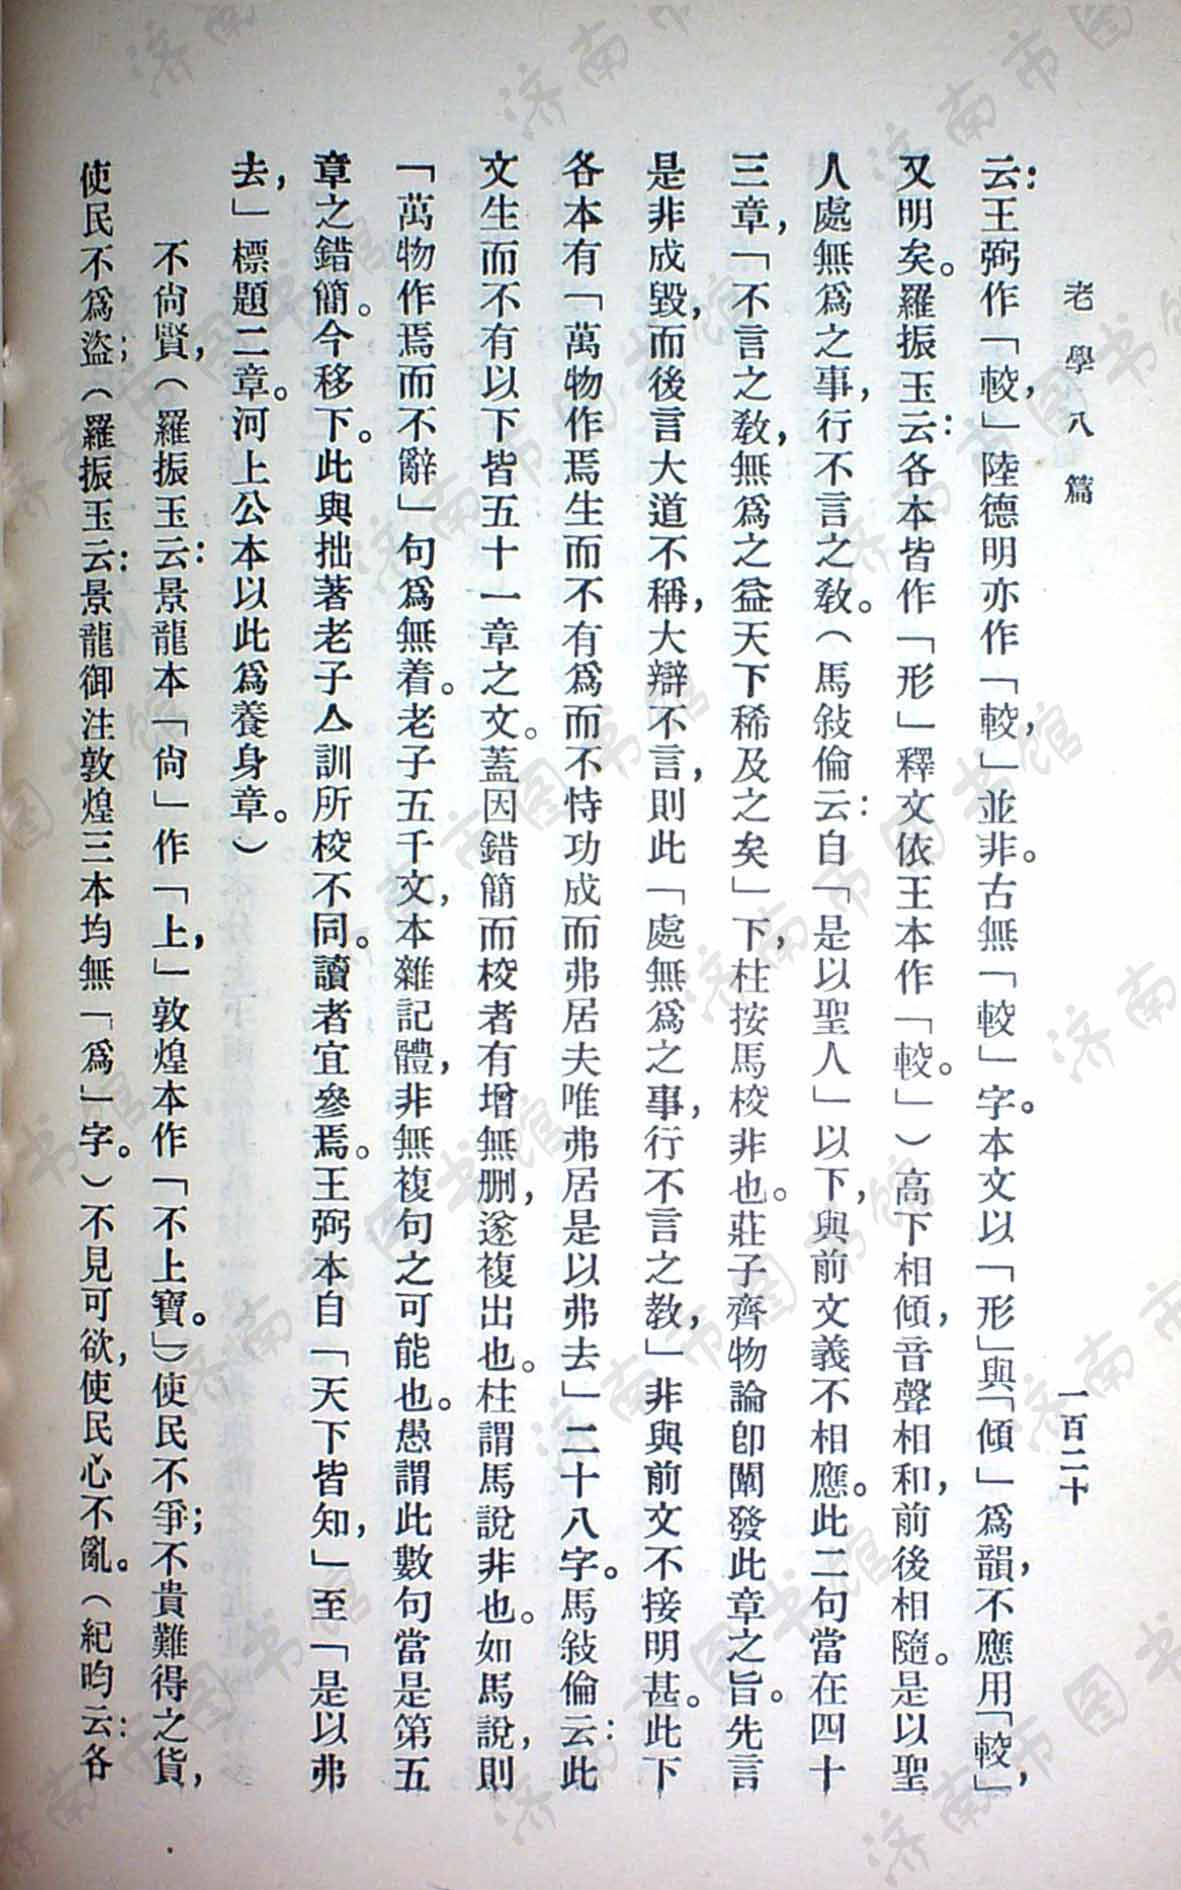 老學八篇
一百二十
云：王弼作「較，」陸德明亦作「較，」並非。古無「較」字。本文以「形」與「傾」爲韻，不應用「較」，
又明矣。羅振玉云：各本皆作「形」釋文依王本作「較。」）高下相傾，音聲相和，前後相隨。是以聖
人處無爲之事，行不言之敎。（馬敍倫云：自「是以聖人」以下，與前文義不相應。此二句當在四十
三章，「不言之敎，無爲之益天下稀及之矣」下，柱按馬校非也。莊子齊物論卽闡發此章之旨。先言
是非成毀，而後言大道不稱，大辯不言，則此「處無爲之事，行不言之教，」非與前文不接明甚。此下
各本有「萬物作焉生而不有爲而不恃功成而弗居夫唯弗居是以弗去」二十八字。馬敍倫云：此
文生而不有以下皆五十一章之文。蓋因錯簡而校者有增無刪，遂複出也。柱謂馬說非也。如馬說，則
「萬物作焉而不辭」句爲無着。老子五千文，本雜記體，非無複句之可能也。愚謂此數句當是第五
章之錯簡。今移下。此與拙著老子亼訓所校不同。讀者宜參焉。王弼本自「天下皆知，」至「是以弗
去，」標題二章。河上公本以此爲養身章。）
不尙賢，（羅振玉云：景龍本「尙」作「上，」敦煌本作「不上寶。」）使民不爭；不貴難得之貨，
使民不爲盜；（羅振玉云：景龍御注敦煌三本均無「爲」字。）不見可欲，使民心不亂。（紀昀云：各